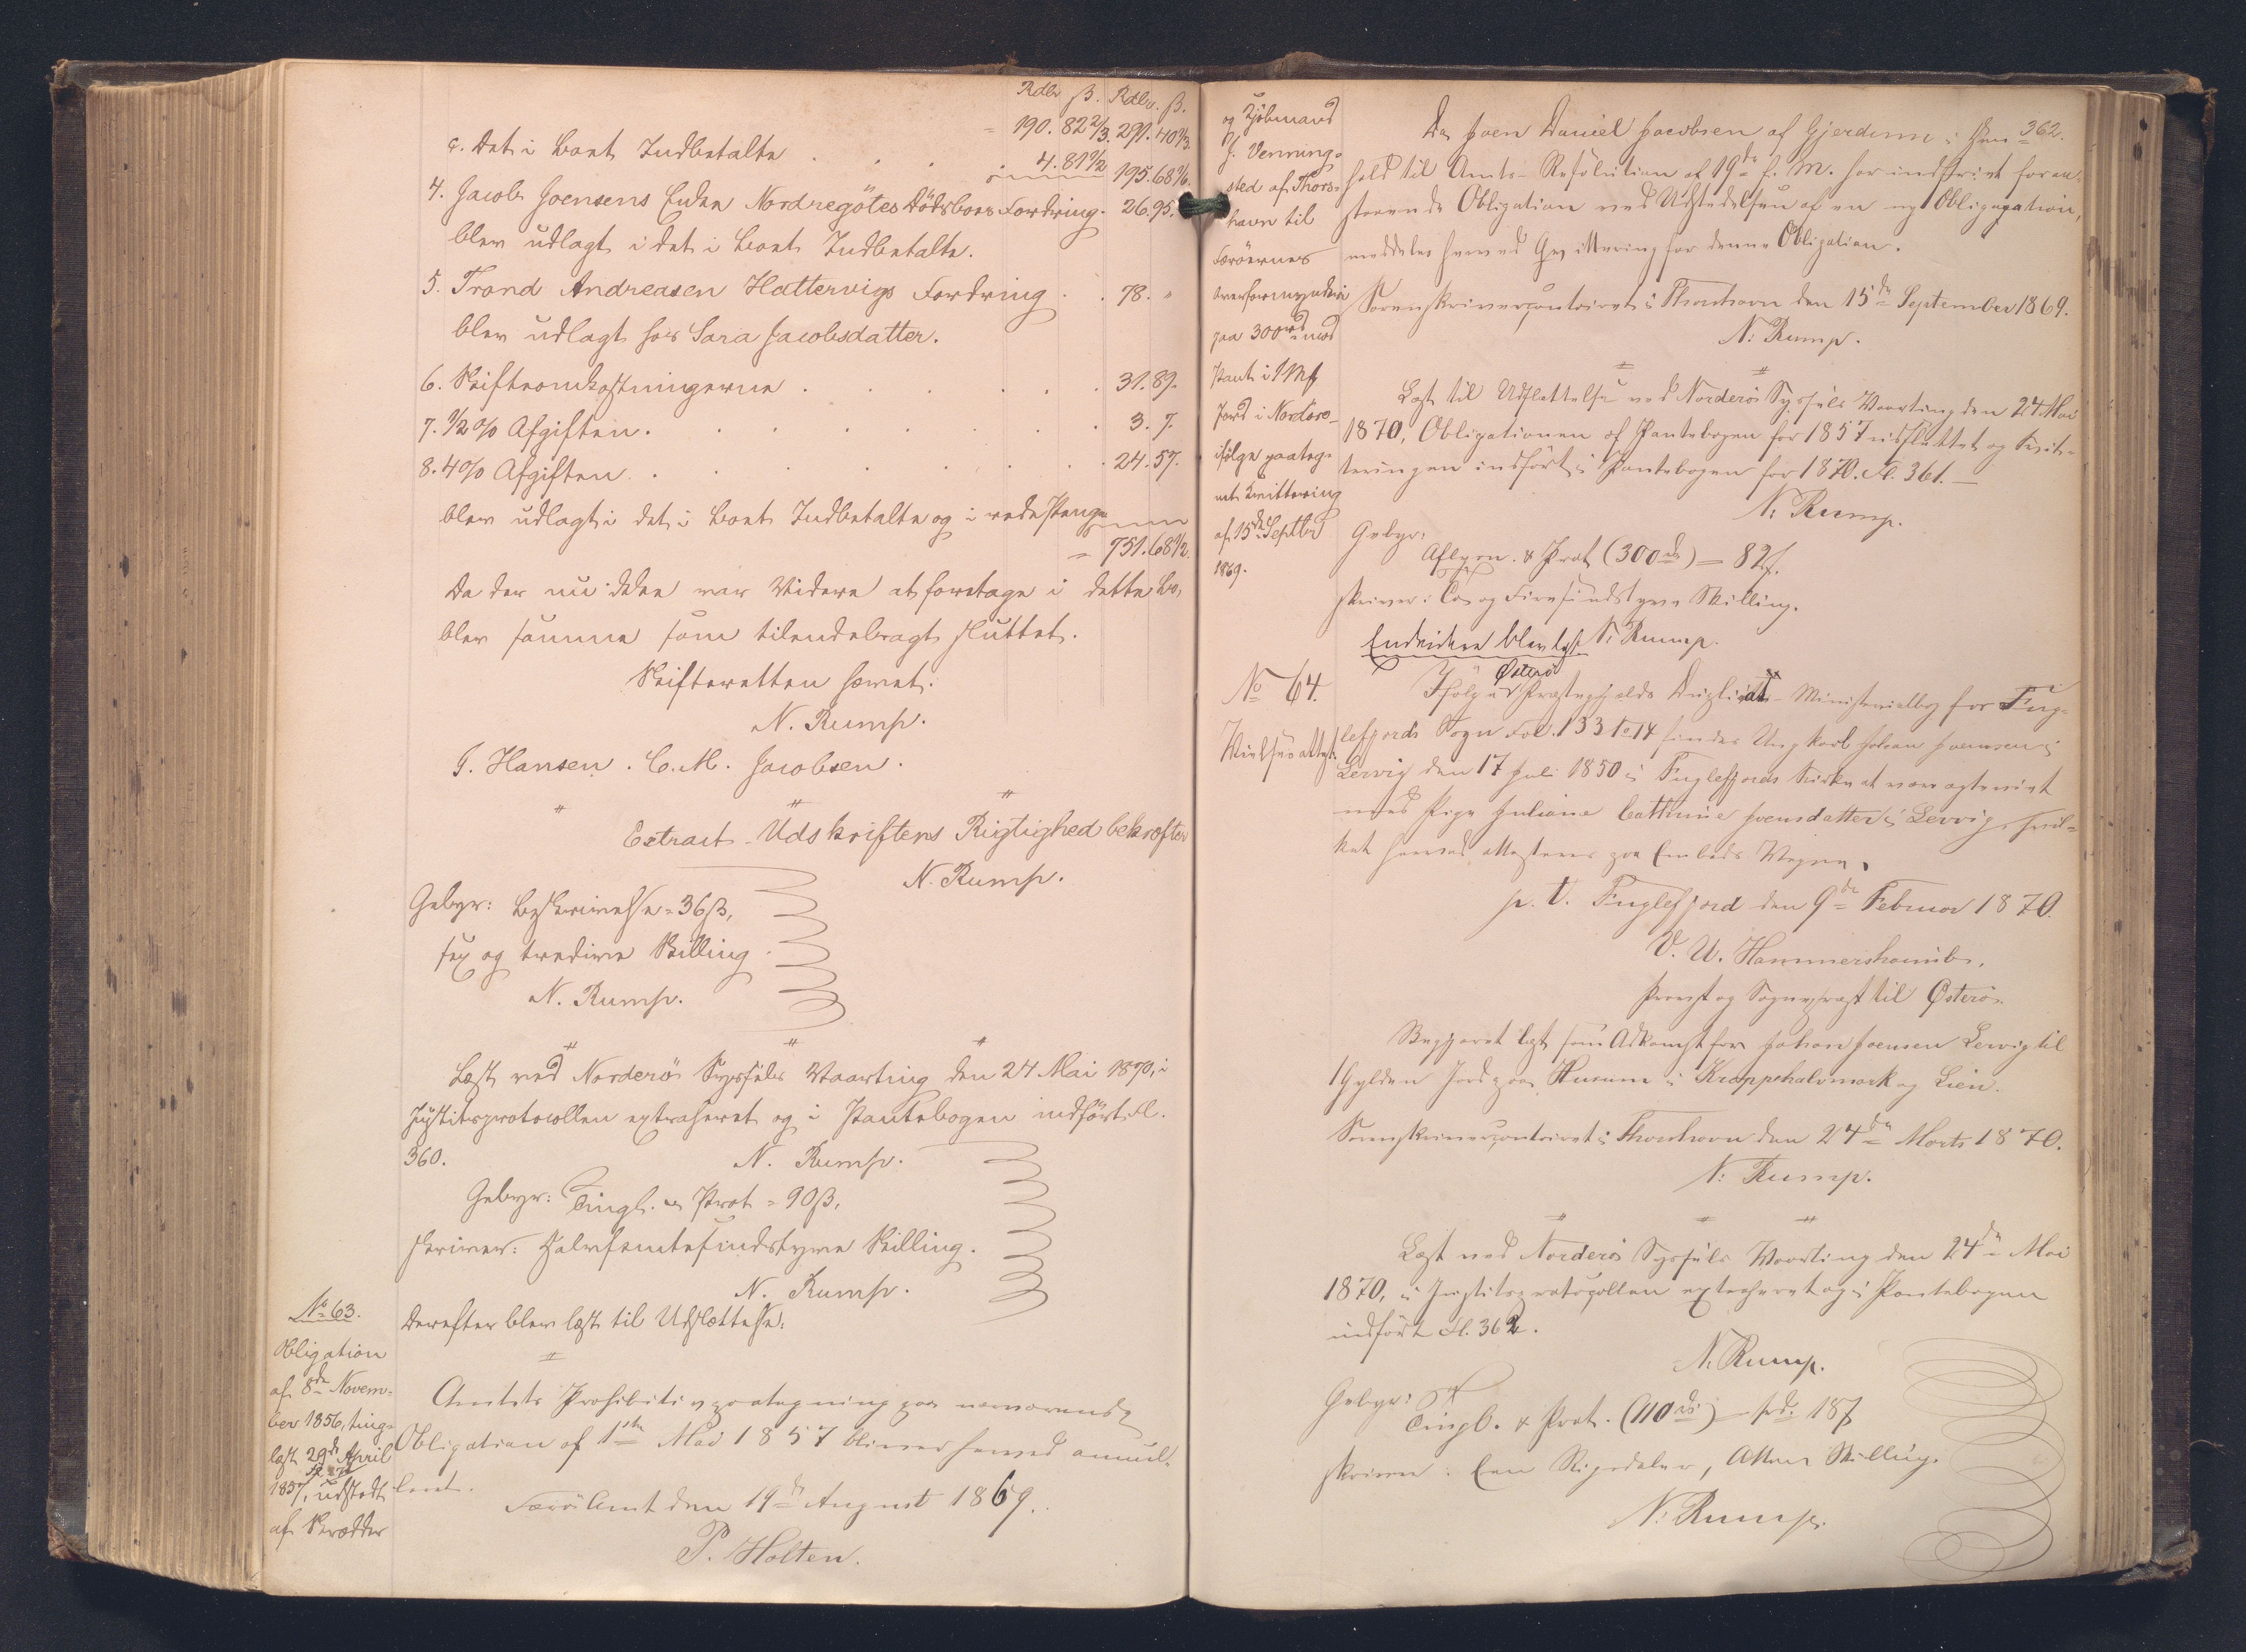 Rdlr ß. Rdlr. ß.
= 190. 82 2/3. 291. 40 1/3.
c. Det i Boet Indbetalte . . . . 4. 81 1/2 195. 68 1/6.
4. Jacob Joensens Enke Nordregötes Dödsboes Fordring. 26. 95.
blev udlagt i det i Boet Indbetalte.
5. Trond Andreasen Hattervigs Fordring . . 78. "
blev udlagt hos Sara Jacobsdatter.
6. Skifteomkostningerne . . . . . 31. 89.
7. 1/2 % Afgiften . . . . . . 3. 7.
8. 4 % Afgiften . . . . . . 24. 57.
blev udlagt i det i Boet Indbetalte og i rede Penge
= 751. 68 1/2.
Da der nu ikke var Videre at foretage i dette Bo,
blev samme som tilendebragt sluttet.
Skifteretten hævet.
N. Rump.
G. Hansen. C. M. Jacobsen.
Extract-Udskriftens Rigtighed bekræfter
N. Rump.
Gebyr: Beskrivelse = 36 ß,
sex og tredive Skilling.
N. Rump.
Læst ved Norderö Syssels Vaarting den 24 Mai 1870, i
Justitsprotocollen extraheret og i Pantebogen indfört Fl.
360.
N. Rump.
Gebyr: Tingl. & Prot = 90 ß,
skriver: Halvfemtesindstyve Skilling.
N. Rump.
No 63.
Obligation
af 8de Novem-
ber 1856, ting-
læst 29de April
1857, udstedt
af Skrædder
Derefter blev læst til Udslettelse:
Amtets Prohibitivpaategning paa nærværende
Obligation af 1ste Mai 1857 bliver herved annul-
leret.
Færö Amt den 19de August 1869.
P. Holten.
og Kjöbmand
J. Venning-
sted af Thors-
havn til
Færöernes
Overformynderi
paa 300 rd mod
Pant i 1 Mk
Jord i Nordöre
ifölge paateg-
net Kvittering
af 15de Septbr
1869.
362.
Da Joen Daniel Jacobsen af Gjerdum i Hen-
hold til Amts-Resolution af 19de f. M. har indfriet foran-
staaende Obligation ved Udstedelsen af en ny Obligagation,
meddeles herved Qvittering for denne Obligation.
Sorenskrivercontoiret i Thorshavn den 15de September 1869.
N. Rump.
Læst til Udslettelse ved Norderö Syssels Vaarting den 24 Mai
1870, Obligationen af Pantebogen for 1857 udslettet og Kvit-
teringen indfört i Pantebogen for 1870. Fl. 361. —
N. Rump.
Gebyr:
Aflysn. & Prot (300 rd) = 82 ß.
skriver: To og Firesindstyve Skilling.
N. Rump.
Endvidere blev læst
No 64.
Vielsesattest.
Ifölge Österö Præstegjelds Duplicat-Ministerialbog for Fug-
lefjords Sogn Fol. 133 No 14 findes Ungkarl Johan Joensen i
Lervig den 17 Juli 1850 i Fuglefjords Kirke at være ægteviet
med Pige Juliane Cathrine Joensdatter i Lervig, hvil-
ket herved attesteres paa Embeds Vegne.
p. t. Fuglefjord den 9de Februar 1870.
V. U. Hammershaimb,
Provst og Sognepræst til Österö.
Begjæret læst som Adkomst for Johan Joensen Lervig til
1 Gylden Jord paa Husum i Kroppshalvmark og Lien.
Sorenskrivercontoiret i Thorshavn den 24de Marts 1870.
N. Rump.
Læst ved Norderö Syssels Vaarting den 24de Mai
1870, i Justitsprotocollen extraheret og i Pantebogen
indfört Fl. 362.
N. Rump.
Gebyr:
Tingl. & Prot. (110 rd) = 1 rd. 18 ß
skriver: Een Rigsdaler, Atten Skilling.
N. Rump.